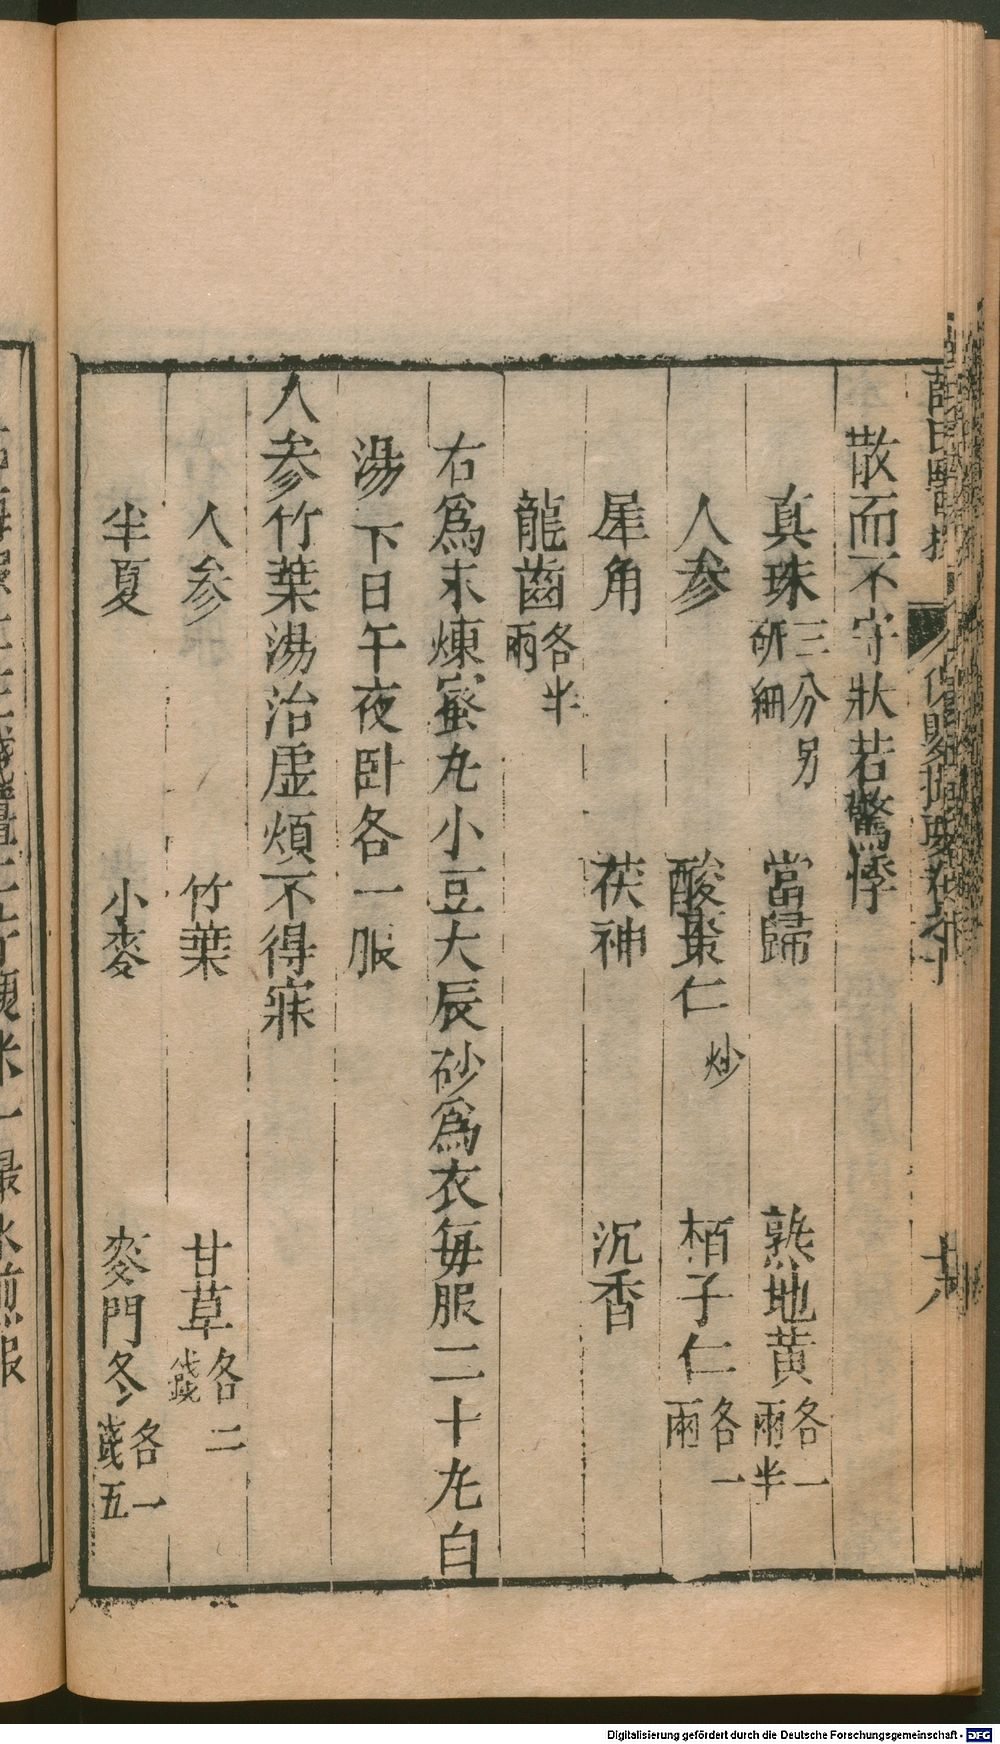 散而不守狀若驚悸
真珠三分另研細 當歸 熟地黄各一兩半
人參 酸棗仁炒 栢子仁各一兩
犀角 茯神 沉香
龍齒各半兩
右爲末煉蜜丸小豆大辰砂爲衣每服二十丸白
湯下日午夜卧各一服
人參竹葉湯治虛煩不得寐
人參 竹葉 甘草各二錢
半夏 小麥 麥門冬各一錢五
米一撮水煎服
Digitalisierung gefördert durch die Deutsche Forschungsgemeinschaft - DFG